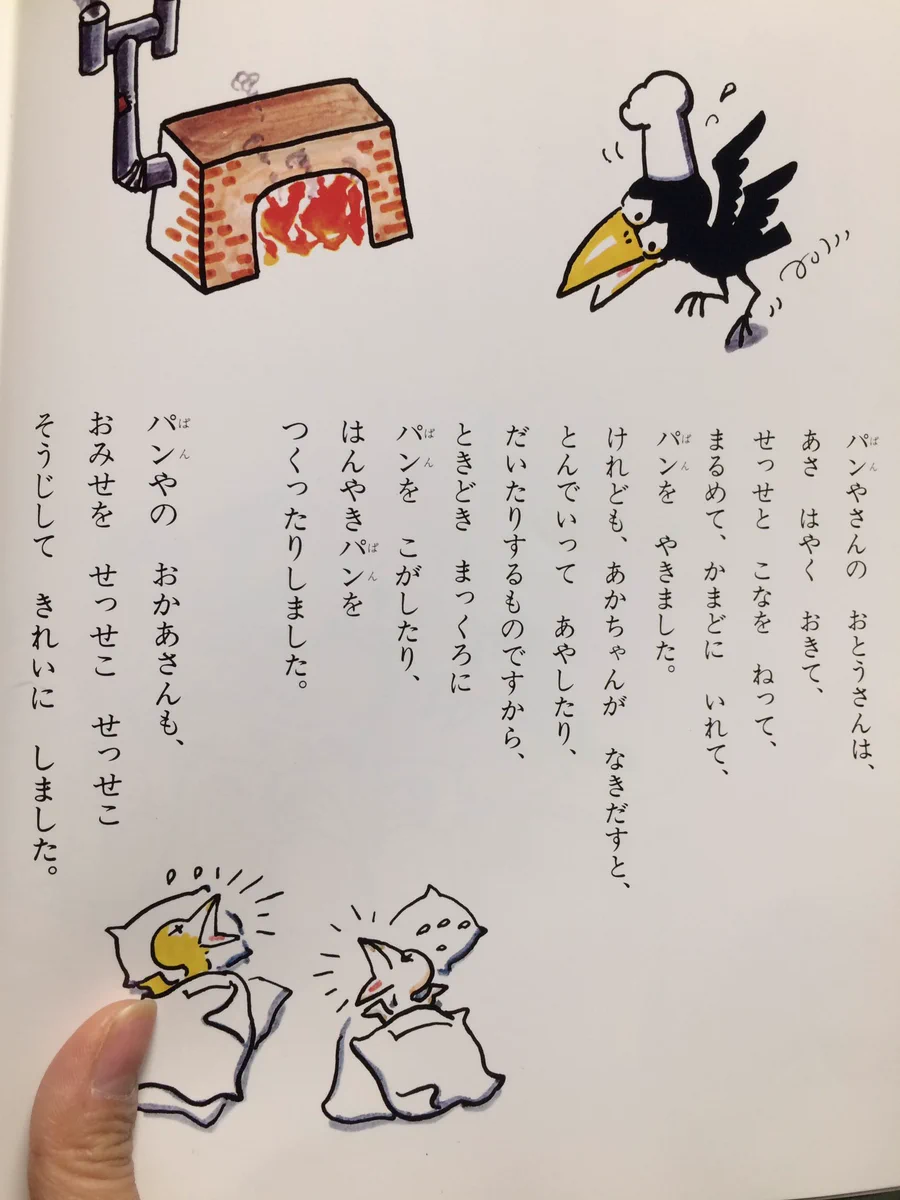 パンやさんの　おとうさんは、
あさ　はやく　おきて、
せっせと　こなを　ねって、
まるめて、かまどに　いれて、
パンを　やきました。
けれども、あかちゃんが　なきだすと、
とんでいって　あやしたり、
だいたりするものですから、
ときどき　まっくろに
パンを　こがしたり、
はんやきパンを
つくったりしました。
パンやの　おかあさんも、
おみせを　せっせこ　せっせこ
そうじして　きれいに　しました。